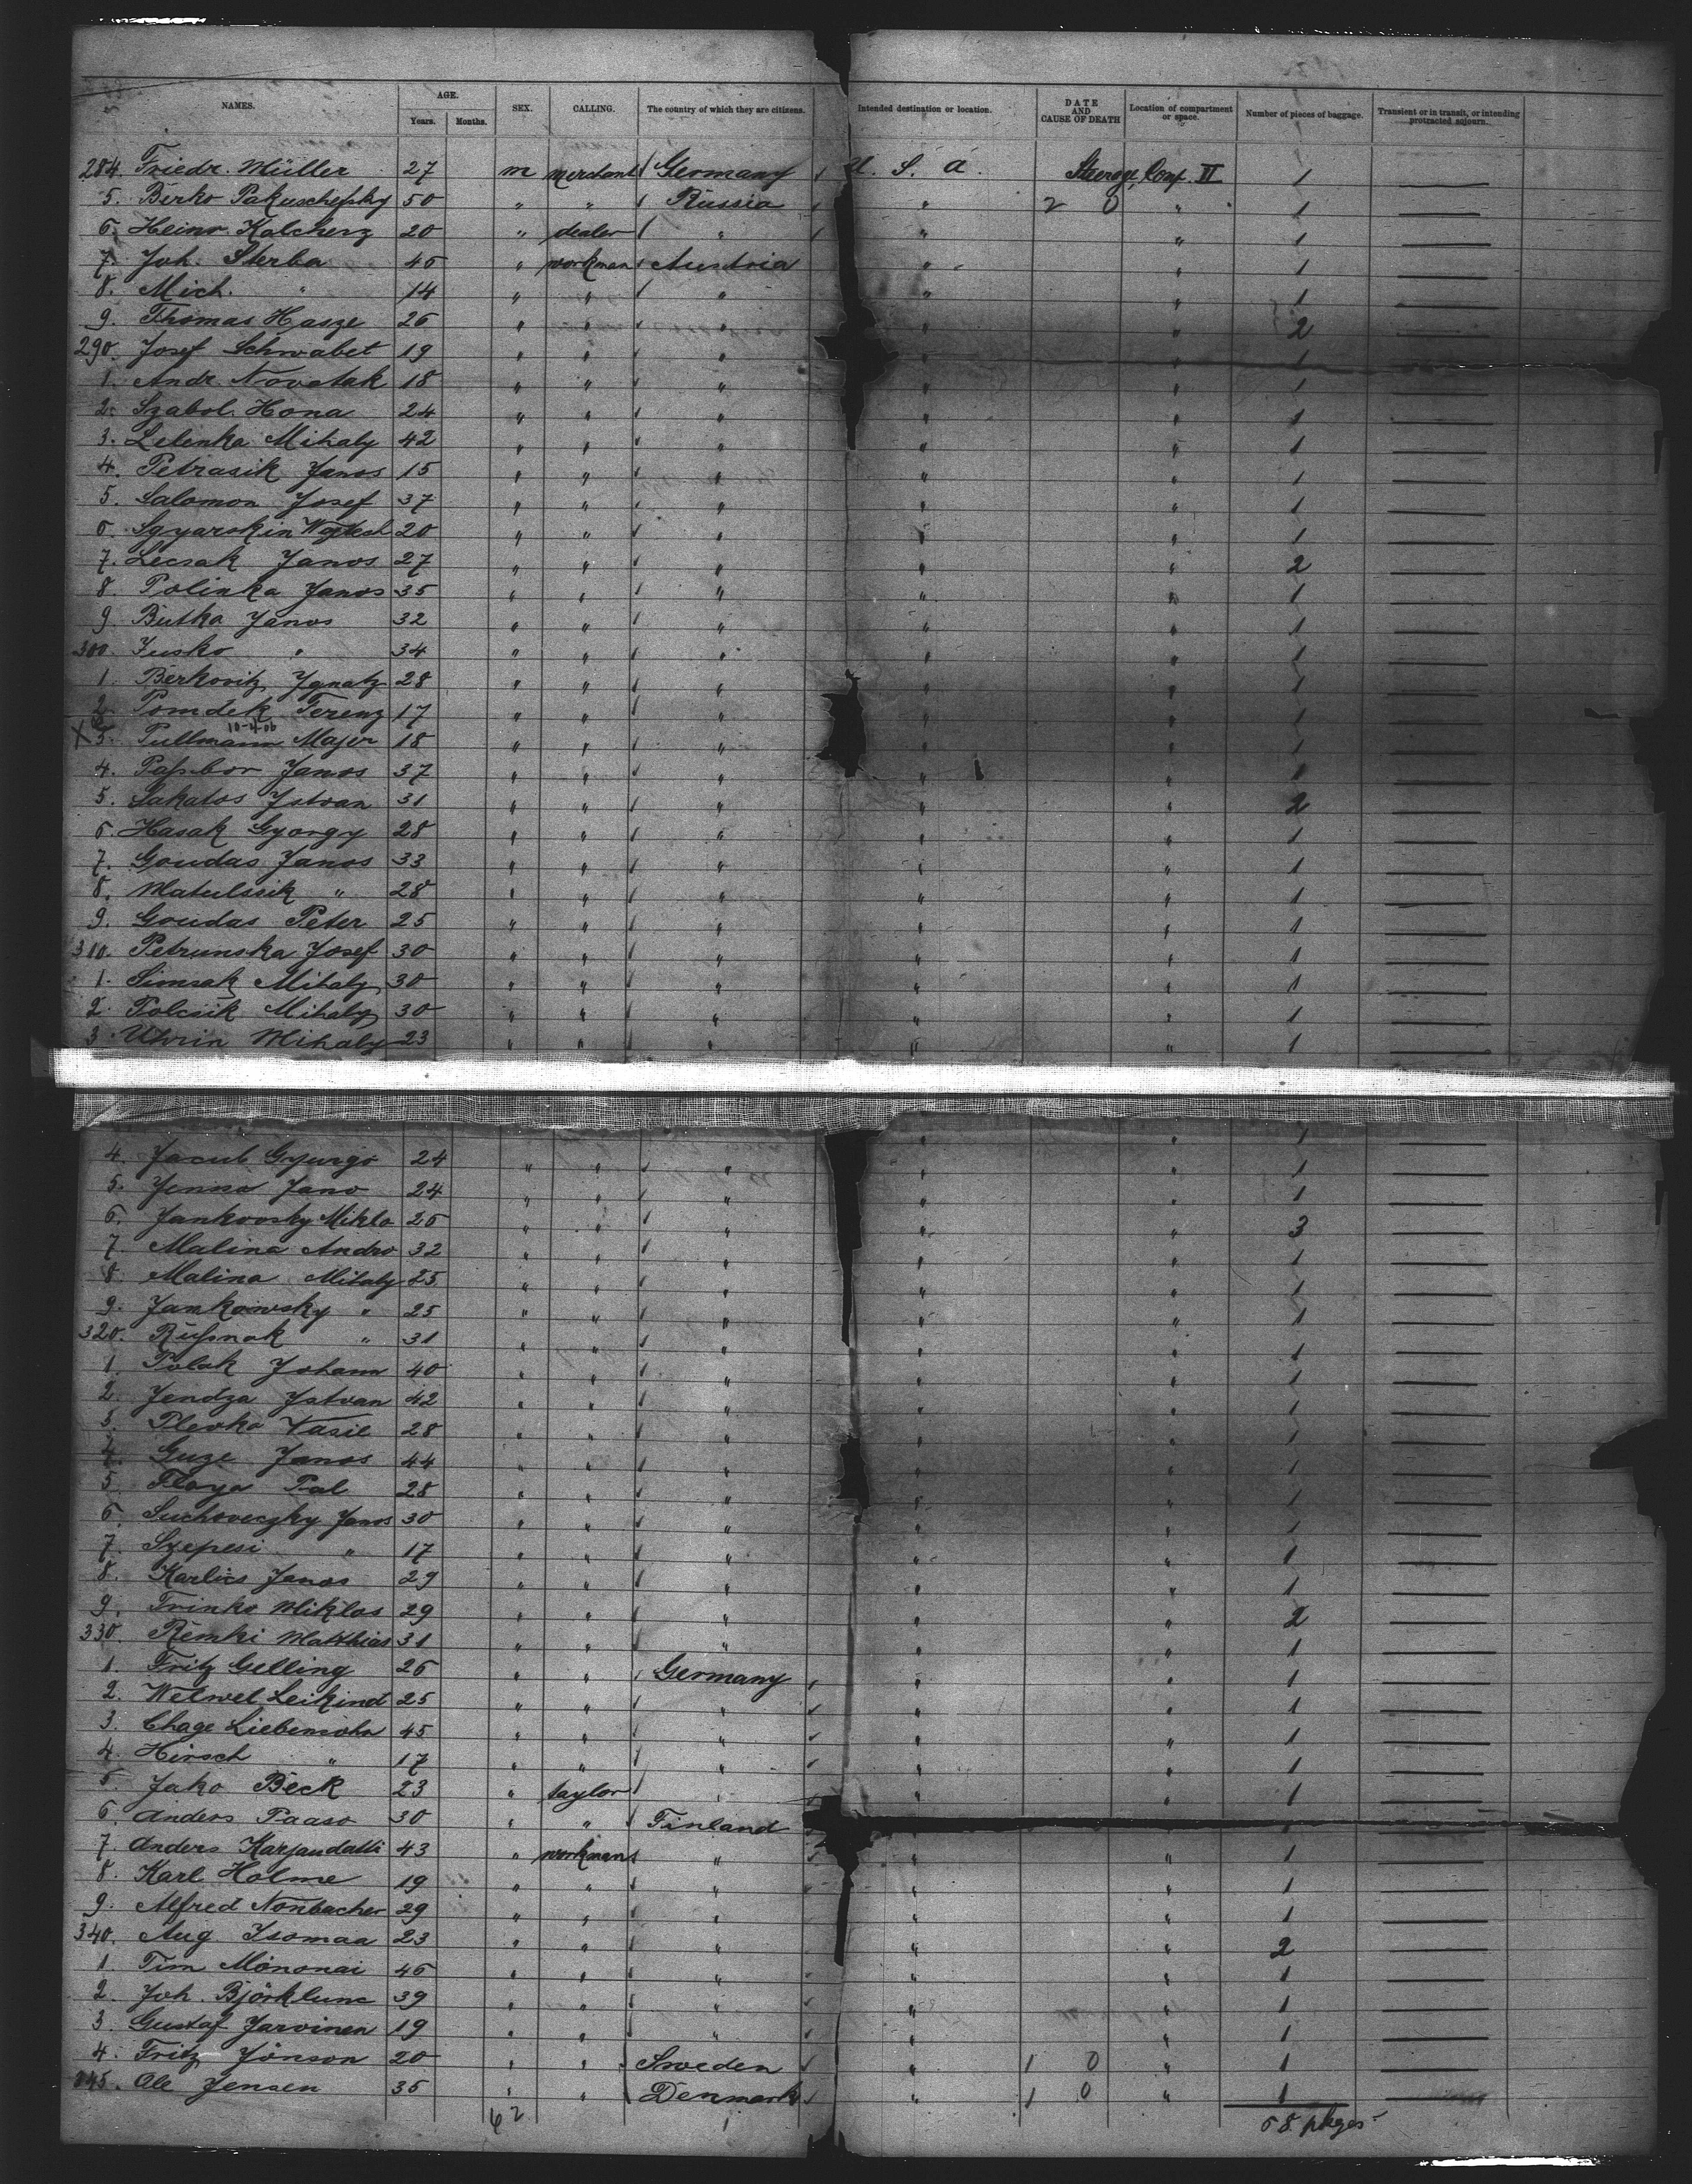 NAMES. AGE. Years. Months. SEX. CALLING. The country of which they are citizens. Intended destination or location. DATE AND CAUSE OF DEATH Location of compartment or space. Number of pieces of baggage. Transient or in transit, or intending protracted sojourn.
284. Friedr. Müller 27 m merchant Germany U. S. A. Steerage, Comp. II 1 —
5. Birko Pakuschefsky 50 " " Russia " 2 0 " 1 —
6. Heinr. Kalcherz 20 " dealer " " " 1 —
7. Joh. Sterba 46 " workman Austria " " 1 —
8. Mich. " 14 " " " " " 1 —
9. Thomas Hasze 26 " " " " " 2 —
290. Josef Schwabet 19 " " " " " 1 —
1. Andr. Novotak 18 " " " " " 1 —
2. Szabol. Hona 24 " " " " " 1 —
3. Lelenka Mihaly 42 " " " " " 1 —
4. Petrasik Janos 15 " " " " " 1 —
5. Salomon Josef 37 " " " " " 1 —
6. 20 " " " " " 1 —
7. Lecsak Janos 27 " " " " " 2 —
8. Polinka Janos 35 " " " " " 1 —
9. Butka Janos 32 " " " " " 1 —
300. Jusko " 34 " " " " " 1 —
1. Berkovitz Ygnatz 28 " " " " " 1 —
2. Pomdek Ferenz 17 " " " " " 1 —
10-4-06
X 3. Pullmann Majer 18 " " " " " 1 —
4. Paßbor Janos 37 " " " " " 1 —
5. Lakatos Ystvan 31 " " " " " 2 —
6. Hasak Gyorgy 28 " " " " " 1 —
7. Goudas Janos 33 " " " " " 1 —
8. Matulssik " 28 " " " " " 1 —
9. Goudas Peter 25 " " " " " 1 —
310. Petrunska Josef 30 " " " " " 1 —
1. Simsak Mihaly 30 " " " " " 1 —
2. Polcsik Mihaly 30 " " " " " 1 —
3. Uhrin Mihaly 23 " " " " " 1 —
4. Jacub Gyurgo 24 " " " " " 1 —
5. Jenno Jano 24 " " " " " 1 —
6. Jankovsky Miklo 26 " " " " " 3 —
7. Malina Andro 32 " " " " " 1 —
8. Malina Mihaly 25 " " " " " 1 —
9. Jankowsky " 25 " " " " " 1 —
320. Rußnak " 31 " " " " " 1 —
1. Polak Johann 40 " " " " " 1 —
2. Jendza Ystvan 42 " " " " " 1 —
3. Plevka Vasil 28 " " " " " 1 —
4. Guze Janos 44 " " " " " 1 —
5. Floya Pal 28 " " " " " 1 —
6. Suchoveczky Janos 30 " " " " " 1 —
7. Szepesi " 17 " " " " " 1 —
8. Karlics Janos 29 " " " " " 1 —
9. Trinko Miklos 29 " " " " " 2 —
330. Remki Matthias 31 " " " " " 1 —
1. Fritz Gelling 26 " " Germany " " 1 —
2. Welwel Leikind 25 " " " " " 1 —
3. Chage Liebensohn 45 " " " " " 1 —
4. Hirsch " 17 " " " " " 1 —
5. Jako Beck 23 " taylor " " " 1 —
6. Anders Paaso 30 " " Finland " " 1 —
7. Anders 43 " workman " " " 1 —
8. Karl Holme 19 " " " " " 1 —
9. Alfred Nonbacher 29 " " " " " 1 —
340. Aug Isomaa 23 " " " " " 2 —
1. Tim Mononai 46 " " " " " 1 —
2. Joh. Björklund 39 " " " " " 1 —
3. Gustaf Jarvinen 19 " " " " " 1 —
4. Fritz Jönson 20 " " Sweden " 1 0 " 1 —
345. Ole Jensen 35 " " Denmark " 1 0 " 1 —
62 68 pkges